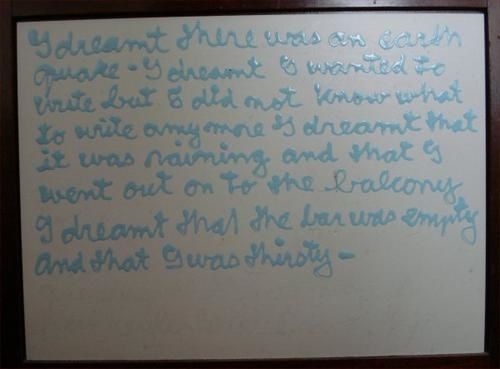 I dreamt there was an earth
quake - I dreamt I wanted to
write but I did not know what
to write anymore I dreamt that
it was raining and that I
went out on to the balcony
I dreamt that the bar was empty
and that I was thirsty -